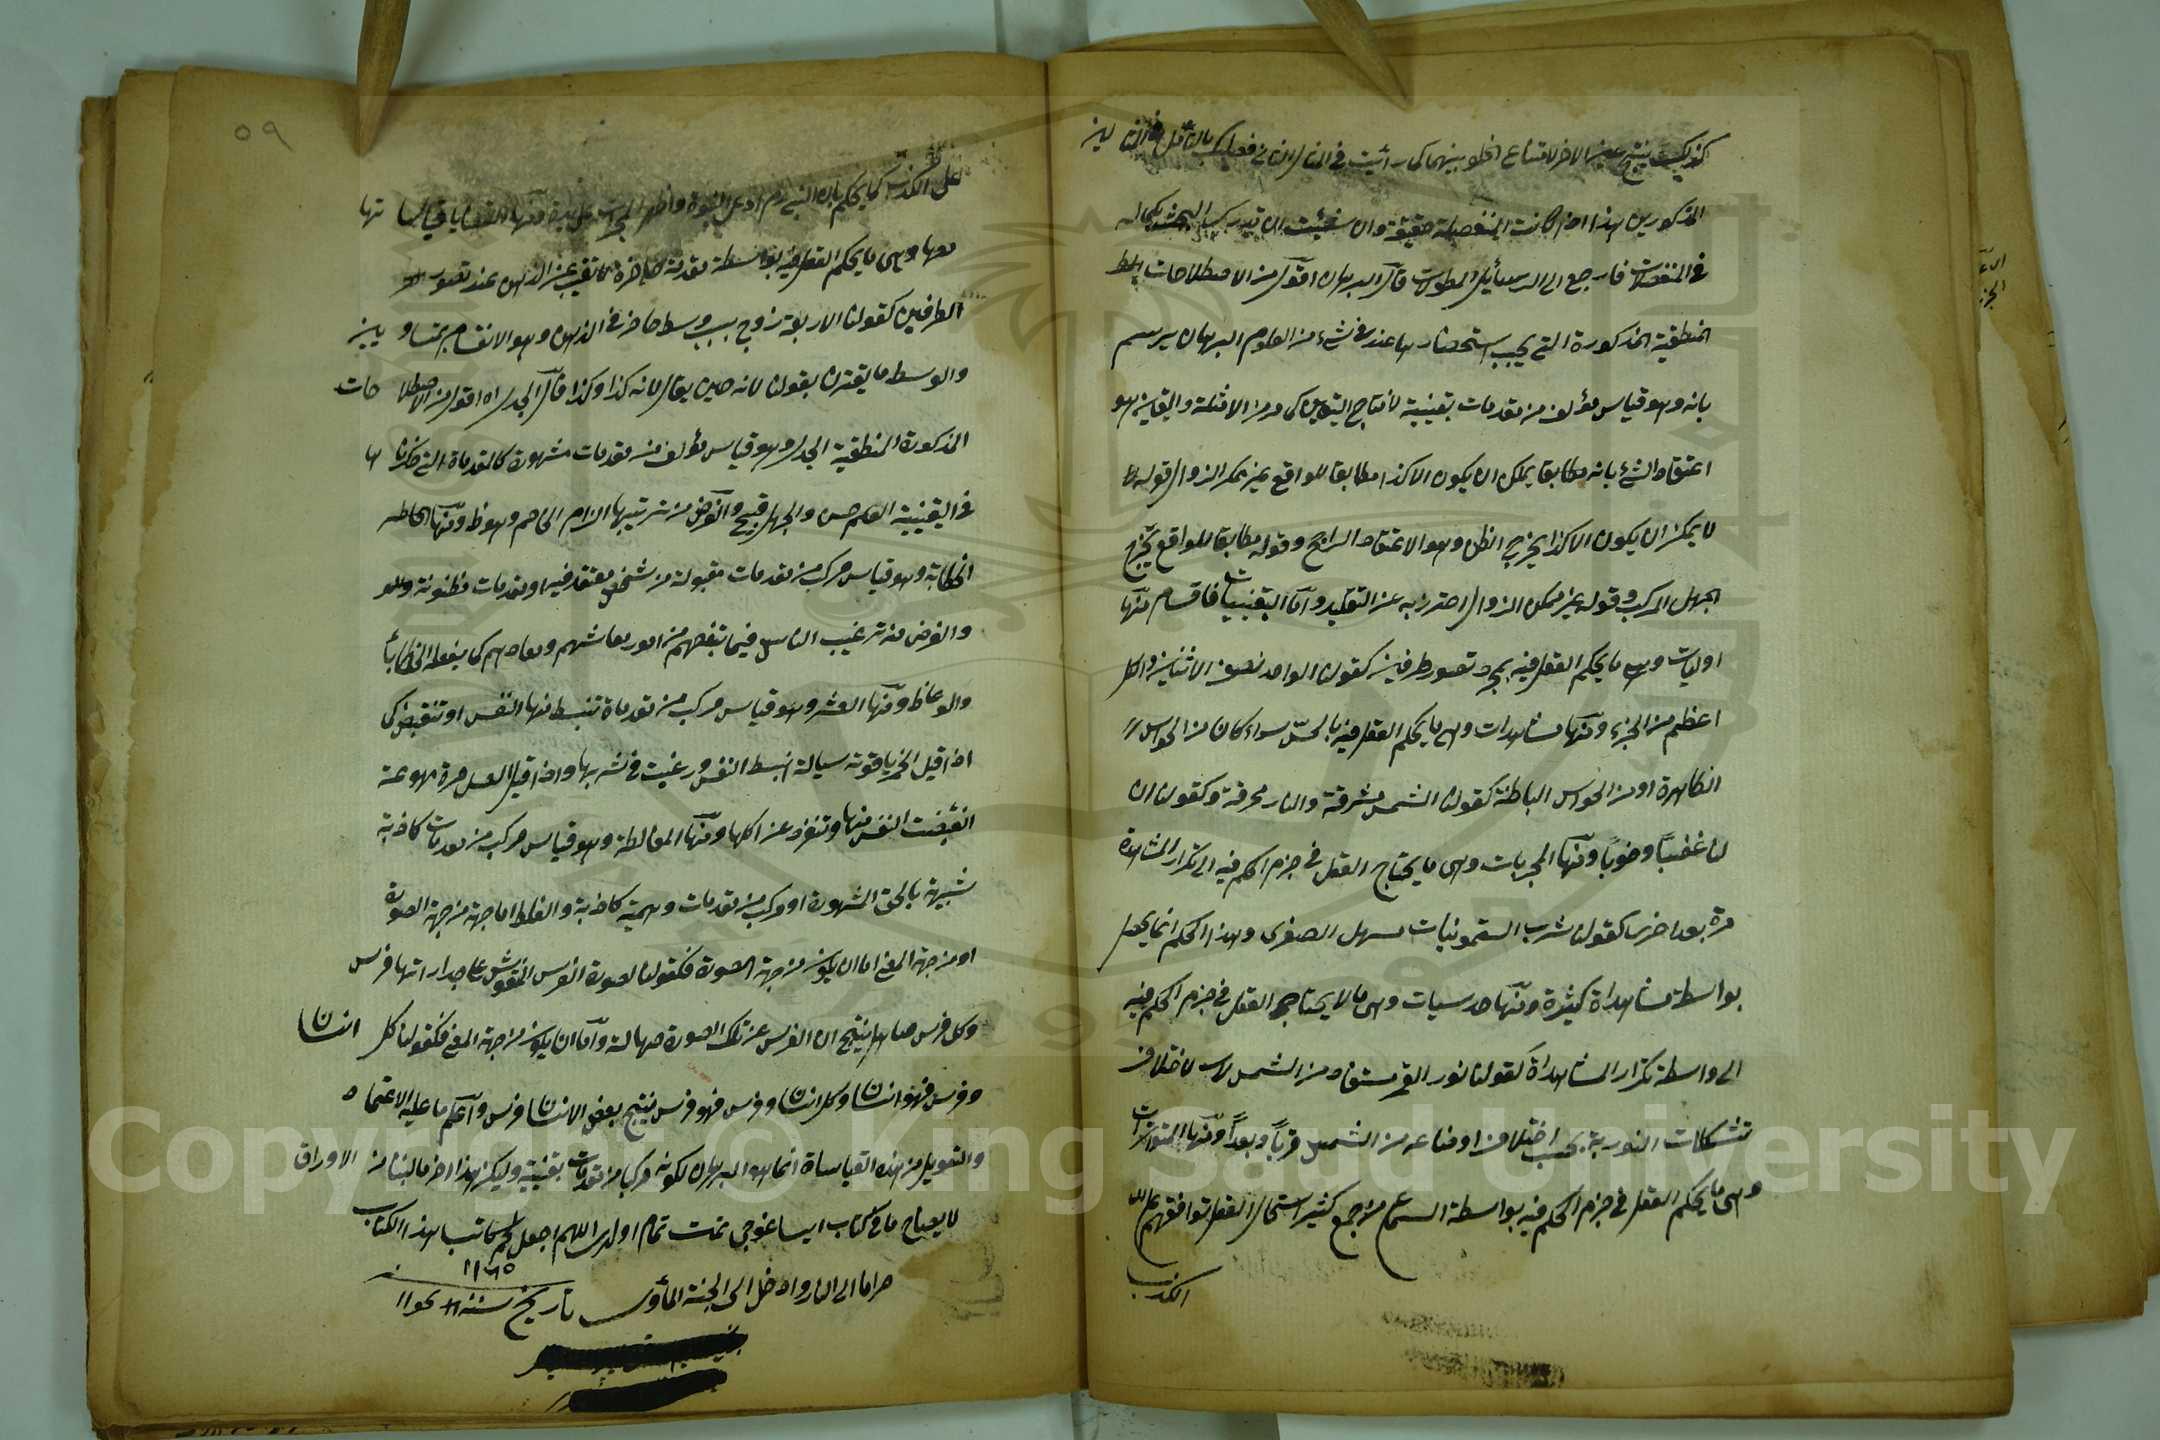 المذكورين هذا اذا كانت المنفصلة حقيقية وان شئت ان تدرك البحث بكماله
في المنفصلات فارجع الى الرسائل المطولات قال البرهان اقول من الاصطلاحات
المنطقية المذكورة التي يجب استحضارها عند في شئ من العلوم البرهان يرسم
بانه وهو قياس مؤلف من مقدمات يقينية لانتاج اليقين كما مر من الامثلة واليقين هو
اعتقاد الشئ بانه لا يمكن ان يكون الا كذا مطابقا للواقع غير ممكن الزوال قوله
لا يمكن ان يكون الا كذا يخرج الظن وهو الاعتقاد الراجح وقوله مطابقا للواقع يخرج
الجهل المركب وقوله غير ممكن الزوال احترز به عن التقليد واما اليقينيات فاقسام منها
اوليات وهى ما يحكم العقل فيه بمجرد تصور طرفين كقولنا الواحد نصف الاثنين والكل
اعظم من الجزء ومنها مشاهدات وهى ما يحكم العقل فيه بالحسّ سواء كان من الحواس
الظاهرة او من الحواس الباطنة كقولنا الشمس مشرقة والنار محرقة وكقولنا ان
لنا غضباً وخوفاً ومنها المجربات وهى ما يحتاج العقل في جزم الحكم فيه الى تكرار المشاهدة
مرة بعد اخرى كقولنا شرب السقمونيات يسهل الصفرى وهذا الحكم انما يحصل
بواسطة مشاهداة كثيرة ومنها حدسيات وهى ما لا يحتاج العقل في جزم الحكم فيه
الى واسطة تكرار المشاهداة كقولنا نور القمر مستفاد من الشمس لاختلاف
تشكلات النورية بحسب اختلاف اوضاعه من الشمس قرباً وبعداً ومنها المتواترات
وهى ما يحكم العقل في جزم الحكم فيه بواسطة السماع من جمع كثير استحال العقل توافقهم على
الكذب
٥٩
على الكذب كما يحكم بان النبى ادعى النبوة واظهر المعجزة على يده ومنها القضايا قياساتها
معها وهى ما يحكم العقل فيه بواسطة مقدمة حاضرة لا تغيب عن الذهن عند تصور
الطرفين كقولنا الاربعة زوج بسبب وسط حاضر في الذهن وهو الانقسام بمتساويين
والوسط ما يقترن بقولنا لانه حين يقال لانه كذا وكذا قال الجدل اقول من الاصطلاحات
المذكورة المنطقية الجدل وهو قياس مؤلف من مقدمات مشهورة كالمقدماة التي ذكرناها
في اليقينية العلم حسن والجهل قبيح والغرض من ترتيبها الزام الخاصم وهو ظ ومنها
الخطابة وهو قياس مركب من مقدمات مقبولة من شخص معتقد فيه او مقدمات مظنونة
والغرض منه ترغيب الناس فيما ينفعهم من امور معاشهم ومعادهم كما يفعله الخطباء
والوعاظ ومنها الشعر وهو قياس مركب من مقدماة تنبسط منها النفس او تنقبض كما
اذا قيل الخمر ياقوتة سيالة انبسط النفس ورغبت في شربها واذا قيل العسل مرة مهوعة
انقبضت النفس منها وتنفر عن اكلها ومنها المغالطة وهو قياس مركب من مقدمات كاذبة
شبيهة بالحق المشهورة او مركب من مقدمات وهمية كاذبة والغلط اما من جهة الصورة
او من جهة المعنى اما ان يكون من جهة الصورة فكقولنا لصورة الفرس المنقوش على جدار انها فرس
وكل فرس صاهل ينتج ان الفرس عن تلك الصورة صهالة واما ان يكون من جهة المعنى فكقولنا كل انسان
وفرس فهو انسان وكل انسان وفرس فهو فرس ينتج بعض الانسان فرس واعلم ما عليه الاعتماد
والتعويل من هذه القياساة انما هو البرهان لكونه مركبا من مقدمات يقينية وليكن هذا اخر ما لبنا من الاوراق
لا يضاح ما في كتاب ايساغوجى تمت تمام اولدى اللهم اجعل لحم كاتب هذا الكتاب
١١٦٥
حراما الى النار وادخل الى الجنة المأوى تاريخ سنه